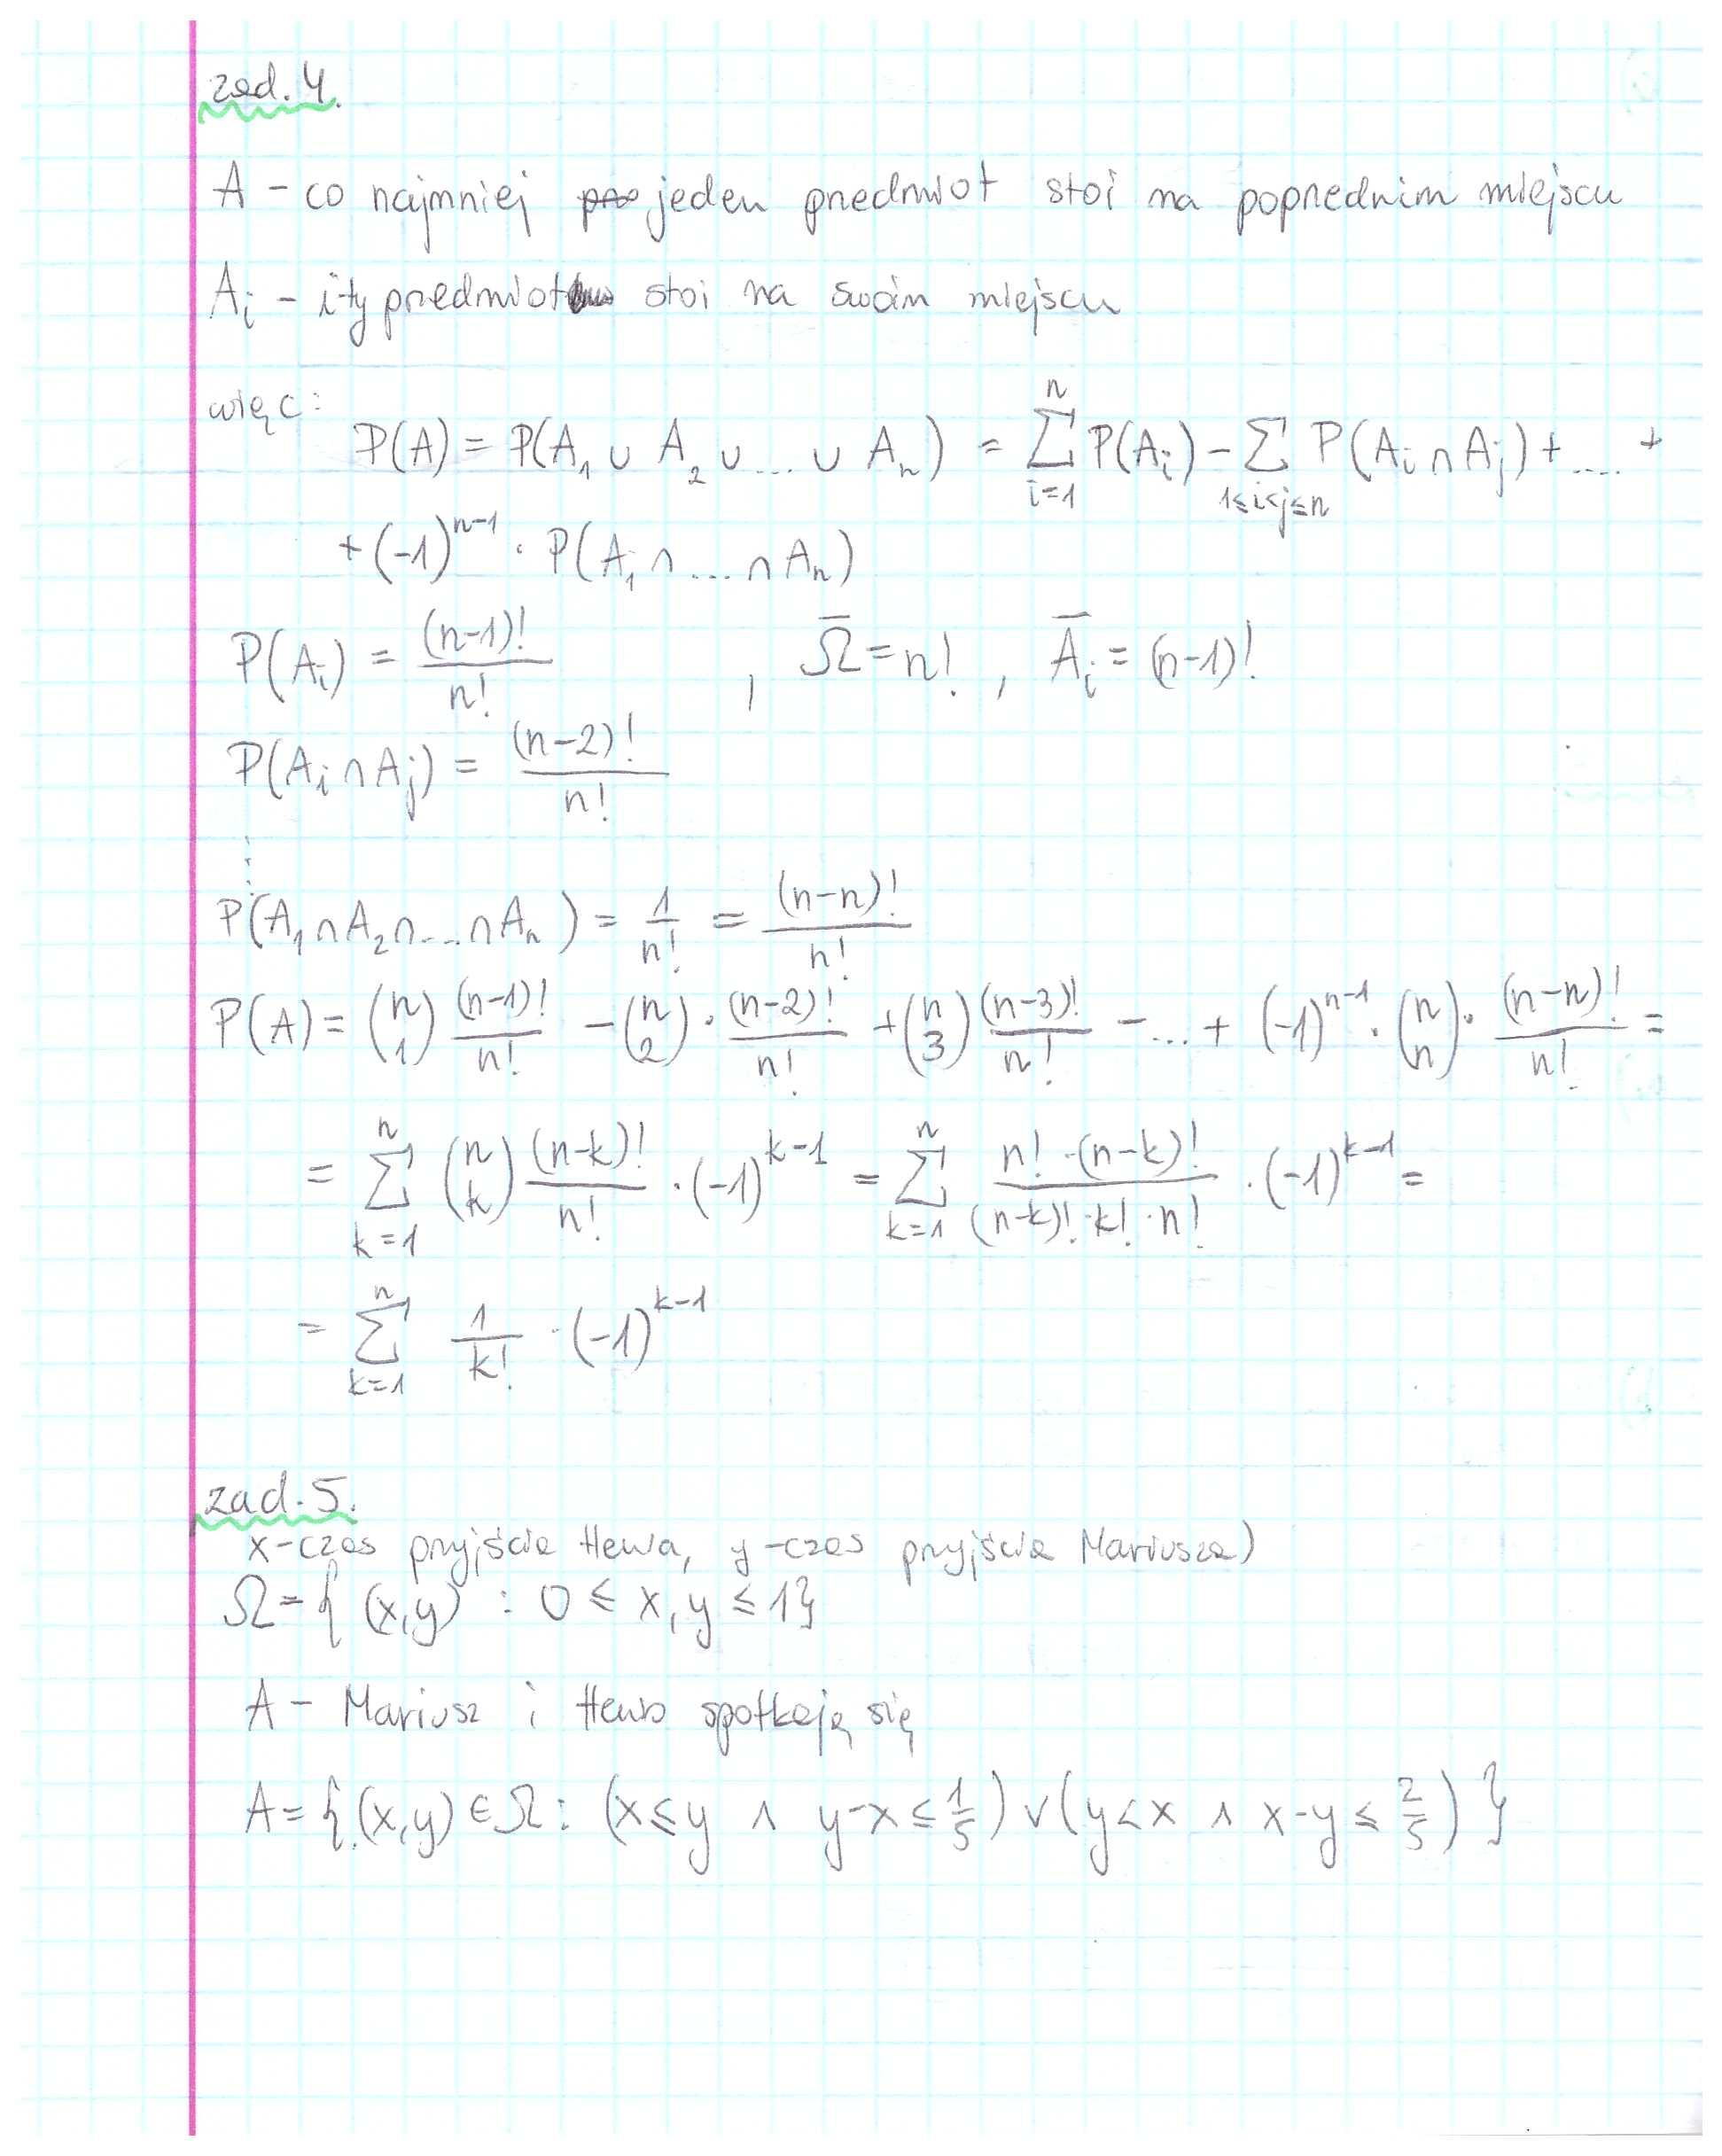 zad. 4.
A – co najmniej jeden przedmiot stoi na poprzednim miejscu
A_i – i-ty przedmiot stoi na swoim miejscu
więc:
P(A) = P(A_1 ∪ A_2 ∪ ... ∪ A_n) = \sum_{i=1}^{n} P(A_i) – \sum_{1≤i<j≤n} P(A_i ∩ A_j) + .... +
+ (-1)^{n-1} · P(A_1 ∩ ... ∩ A_n)
P(A_i) = \frac{(n-1)!}{n!} , \bar{Ω} = n! , \bar{A_i} = (n-1)!
P(A_i ∩ A_j) = \frac{(n-2)!}{n!}
⋮
P(A_1 ∩ A_2 ∩ ... ∩ A_n) = \frac{1}{n!} = \frac{(n-n)!}{n!}
P(A) = \binom{n}{1} \frac{(n-1)!}{n!} – \binom{n}{2} · \frac{(n-2)!}{n!} + \binom{n}{3} \frac{(n-3)!}{n!} – ... + (-1)^{n-1} · \binom{n}{n} · \frac{(n-n)!}{n!} =
= \sum_{k=1}^{n} \binom{n}{k} \frac{(n-k)!}{n!} · (-1)^{k-1} = \sum_{k=1}^{n} \frac{n! · (n-k)!}{(n-k)! · k! · n!} · (-1)^{k-1} =
= \sum_{k=1}^{n} \frac{1}{k!} · (-1)^{k-1}
zad. 5.
x – czas przyjścia , y – czas przyjścia Mariusza)
Ω = { (x,y) : 0 ≤ x, y ≤ 1}
A – Mariusz i spotkają się
A = { (x,y) ∈ Ω : (x ≤ y ∧ y-x ≤ \frac{1}{5}) ∨ (y < x ∧ x-y ≤ \frac{2}{5}) }